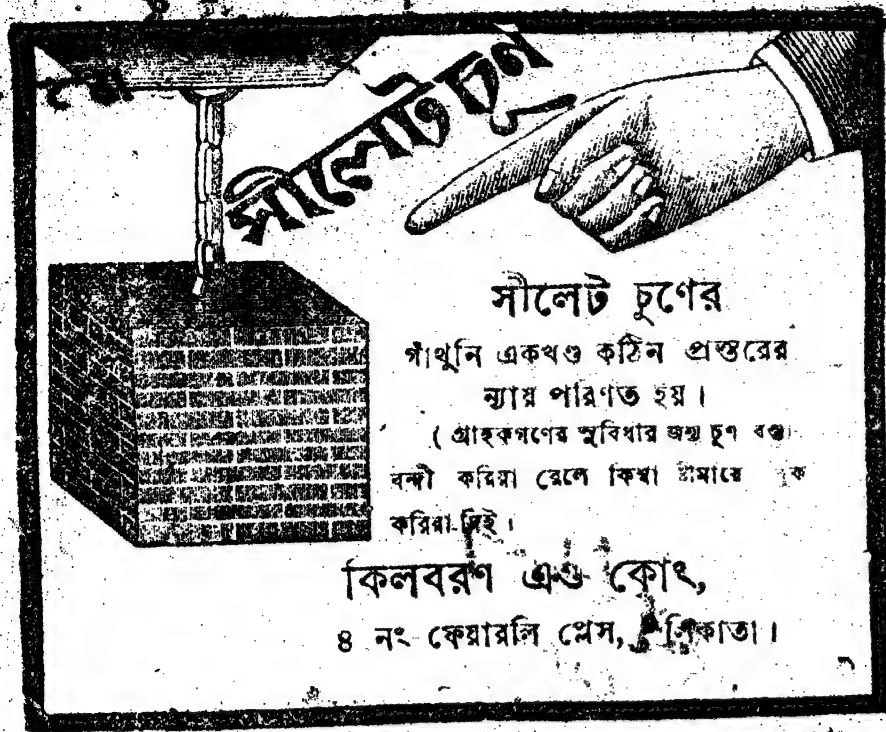 সীলেট চূণ
সীলেট চুণের
গাঁথুনি একখণ্ড কঠিন প্রস্তরের
ন্যায় পরিণত হয়।
( গ্রাহকগণের সুবিধার জন্য চুণ বস্তা
বন্দী করিয়া রেলে কিম্বা ষ্টীমারে
করিয়া দিই।
কিলবরণ এণ্ড কোং,
৪ নং ফেয়ারলি প্লেস, কলিকাতা।